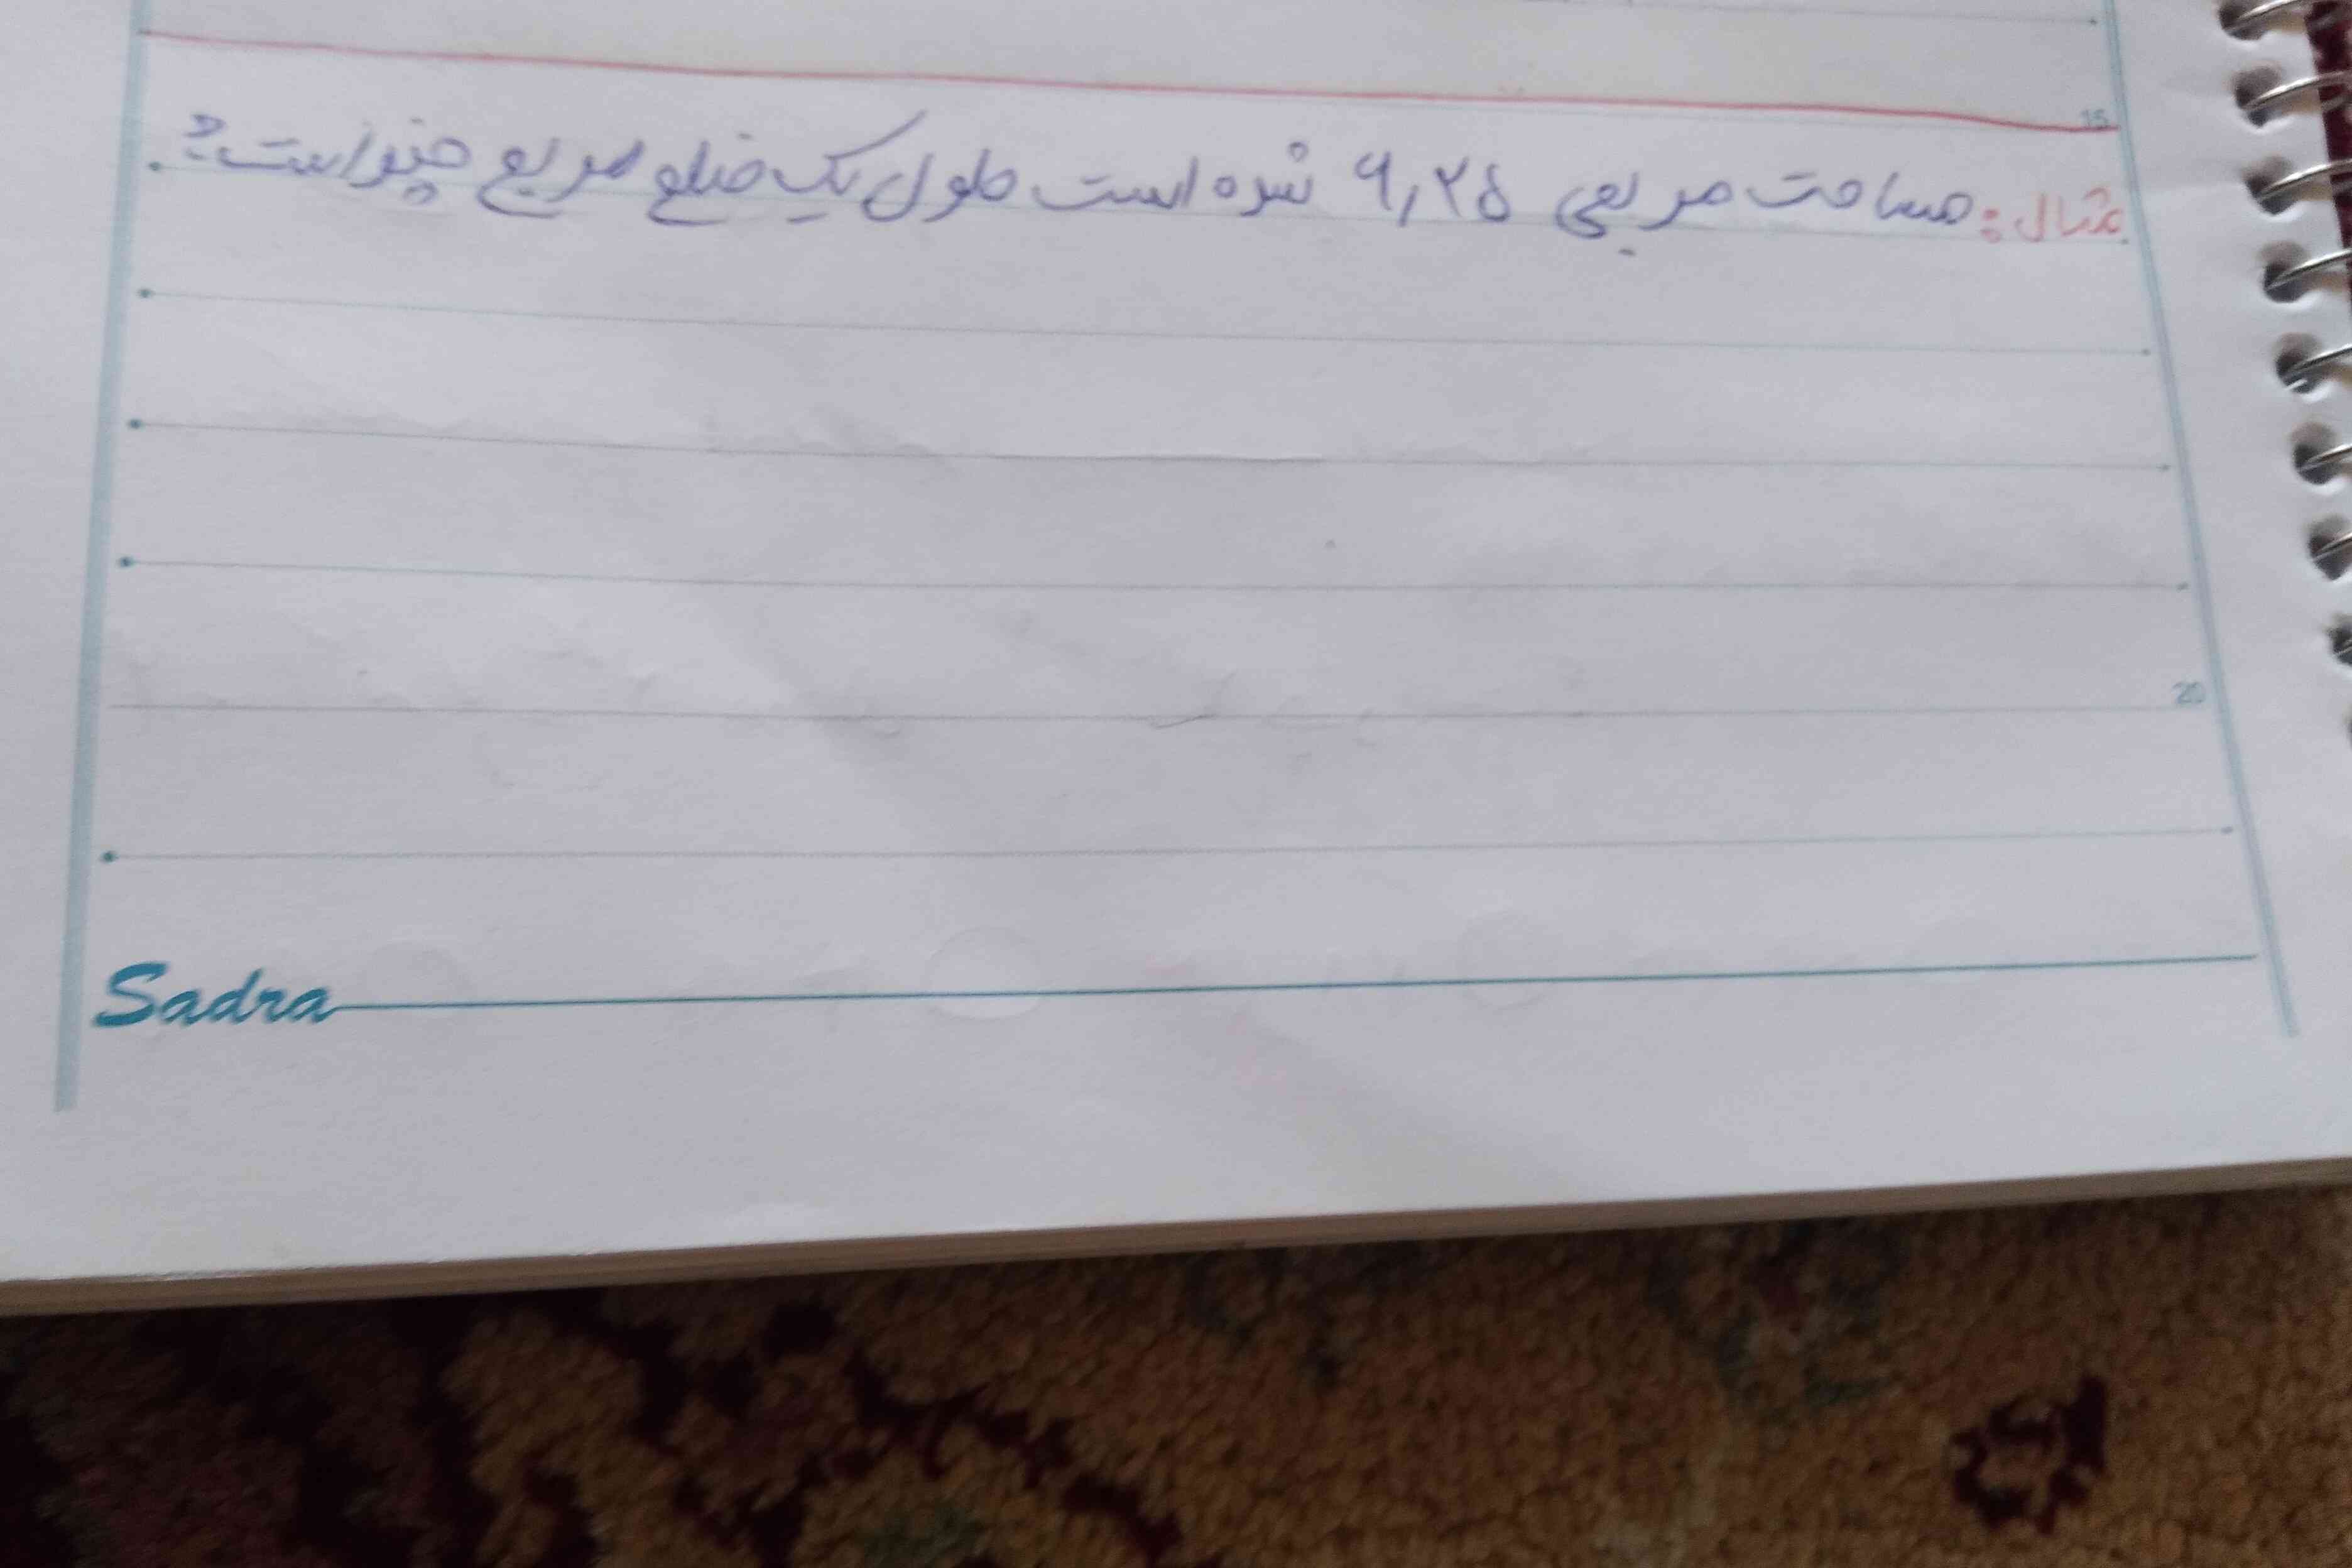 15
مثال: مساحت مربعی ۶٫۲۵ شده است طول یک ضلع مربع چیز است؟
20
Sadra